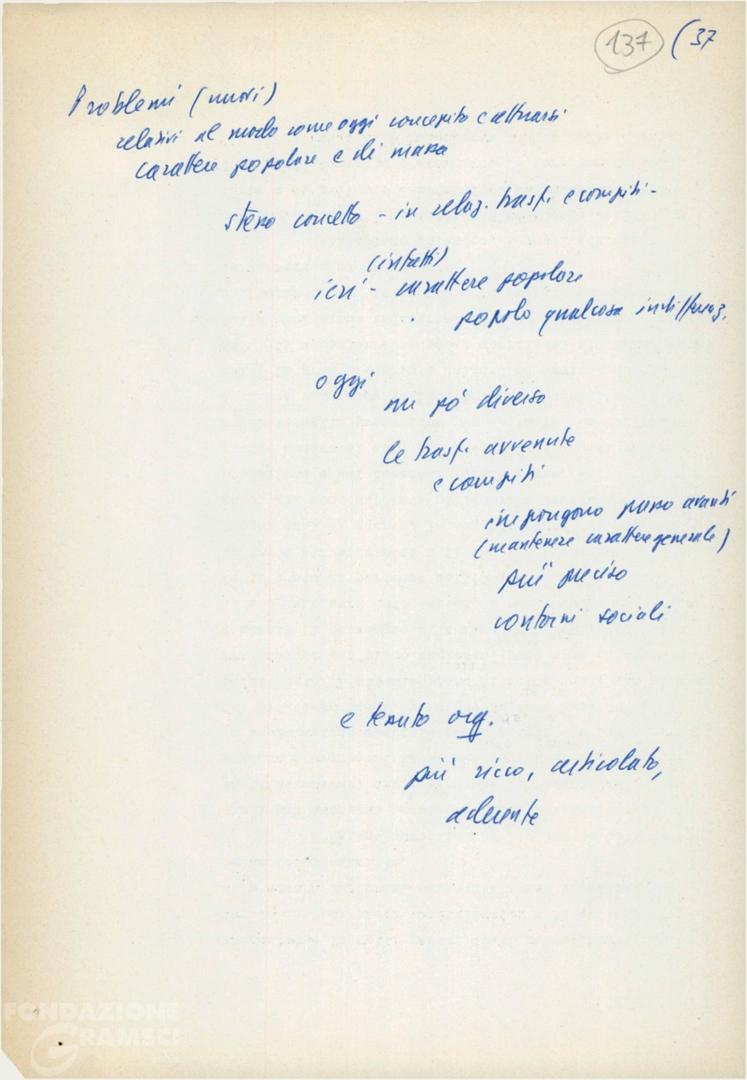 137 (37
Problemi (nuovi)
relativi al modo come oggi concepito e attuarsi
carattere popolare e di massa
stesso concetto - in relaz. trasf. e compiti -
(infatti)
ieri - carattere popolare
popolo qualcosa indifferenz.
oggi
un po' diverso
le trasf. avvenute
e compiti
impongono passo avanti
(mantenere carattere generale)
più preciso
contorni sociali
e tessuto org.
più ricco, articolato,
aderente
FONDAZIONE
GRAMSCI